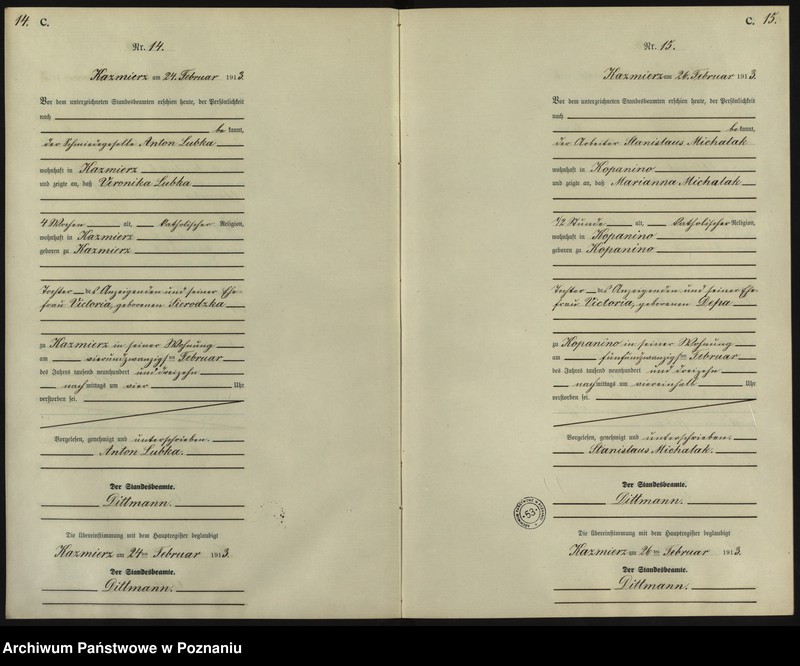 14. C.
Nr. 14.
Kazmierz am 24. Februar 1913.
Vor dem unterzeichneten Standesbeamten erschien heute, der Persönlichkeit
nach
be kannt,
der Schmiedegeselle Anton Lubka
wohnhaft in Kazmierz
und zeigte an, daß Veronika Lubka
4 Wochen alt, katholischer Religion,
wohnhaft in Kazmierz
geboren zu Kazmierz
Tochter des Anzeigenden und seiner Ehe-
frau Victoria, geborenen Sierodzka
zu Kazmierz in seiner Wohnung
am vierundzwanzigsten Februar
des Jahres tausend neunhundert und dreizehn
nachmittags um vier Uhr
verstorben sei.
Vorgelesen, genehmigt und unterschrieben.
Anton Lubka.
Der Standesbeamte.
Dittmann.
Die Übereinstimmung mit dem Hauptregister beglaubigt
Kazmierz am 24ten Februar 1913.
Der Standesbeamte.
Dittmann.
C. 15.
Nr. 15.
Kazmierz am 26. Februar 1913.
Vor dem unterzeichneten Standesbeamten erschien heute, der Persönlichkeit
nach
be kannt,
der Arbeiter Stanislaus Michalak
wohnhaft in Kopanino
und zeigte an, daß Marianna Michalak
1/2 Stunde alt, katholischer Religion,
wohnhaft in Kopanino
geboren zu Kopanino
Tochter des Anzeigenden und seiner Ehe-
frau Victoria, geborenen Depa
zu Kopanino in seiner Wohnung
am fünfundzwanzigsten Februar
des Jahres tausend neunhundert und dreizehn
nachmittags um viereinhalb Uhr
verstorben sei.
Vorgelesen, genehmigt und unterschrieben.
Stanislaus Michalak.
Der Standesbeamte.
Dittmann.
53
Die Übereinstimmung mit dem Hauptregister beglaubigt
Kazmierz am 26ten Februar 1913.
Der Standesbeamte.
Dittmann.
Archiwum Państwowe w Poznaniu